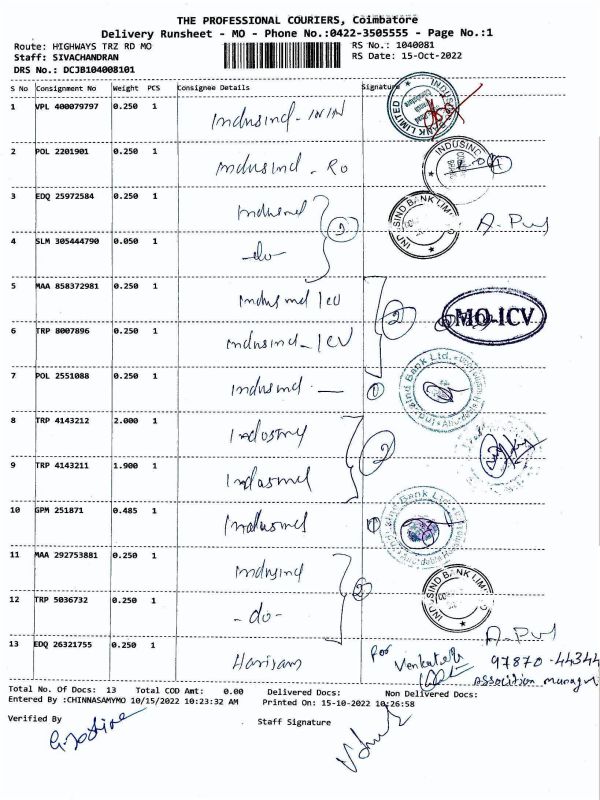 THE PROFESSIONAL COURIERS, Coimbatore
Delivery Runsheet - MO - Phone No.:0422-3505555 - Page No.:1
Route: HIGHWAYS TRZ RD MO RS No.: 1040081
Staff: SIVACHANDRAN RS Date: 15-Oct-2022
DRS No.: DCJB104008101
S No Consignment No Weight PCS Consignee Details Signature
1 VPL 400079797 0.250 1 Indusind - ININ
2 POL 2201901 0.250 1 Indusind - RO
3 EDQ 25972584 0.250 1 Indusind
4 SLM 305444790 0.050 1 -do-
5 MAA 858372981 0.250 1 Indusind ICV
6 TRP 8007896 0.250 1 Indusind - ICV
7 POL 2551088 0.250 1 Indusind
8 TRP 4143212 2.000 1 Indusind
9 TRP 4143211 1.900 1 Indusind
10 GPM 251871 0.485 1 Indusind
11 MAA 292753881 0.250 1 Indusind
12 TRP 5036732 0.250 1 -do-
13 EDQ 26321755 0.250 1 Hariram
BANK LIMITED
INDUSIND
INDUSIND BANK LIMITED
2
MO-ICV
IndusInd Bank Ltd.
1
2
1
2
INDUSIND BANK LIMITED
For
97870-44344
Association manager
Total No. Of Docs: 13 Total COD Amt: 0.00 Delivered Docs: Non Delivered Docs:
Entered By :CHINNASAMYMO 10/15/2022 10:23:32 AM Printed On: 15-10-2022 10:26:58
Verified By Staff Signature